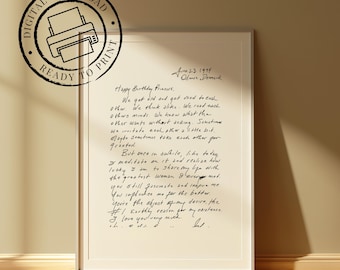 DIGITAL DOWNLOAD
READY TO PRINT
June 23 1994
Odense, Denmark
Happy Birthday Princess,
We get old and get used to each
other. We think alike. We read each
others minds. We know what the
other wants without asking. Sometimes
we irritate each other a little bit.
Maybe sometimes take each other for
granted.
But once in awhile, like today
I meditate on it and realize how
lucky I am to share my life with
the greatest woman I ever met.
You still fascinate and inspire me
You influence me for the better
You're the object of my desire, the
#1 Earthly reason for my existence
I love you very much